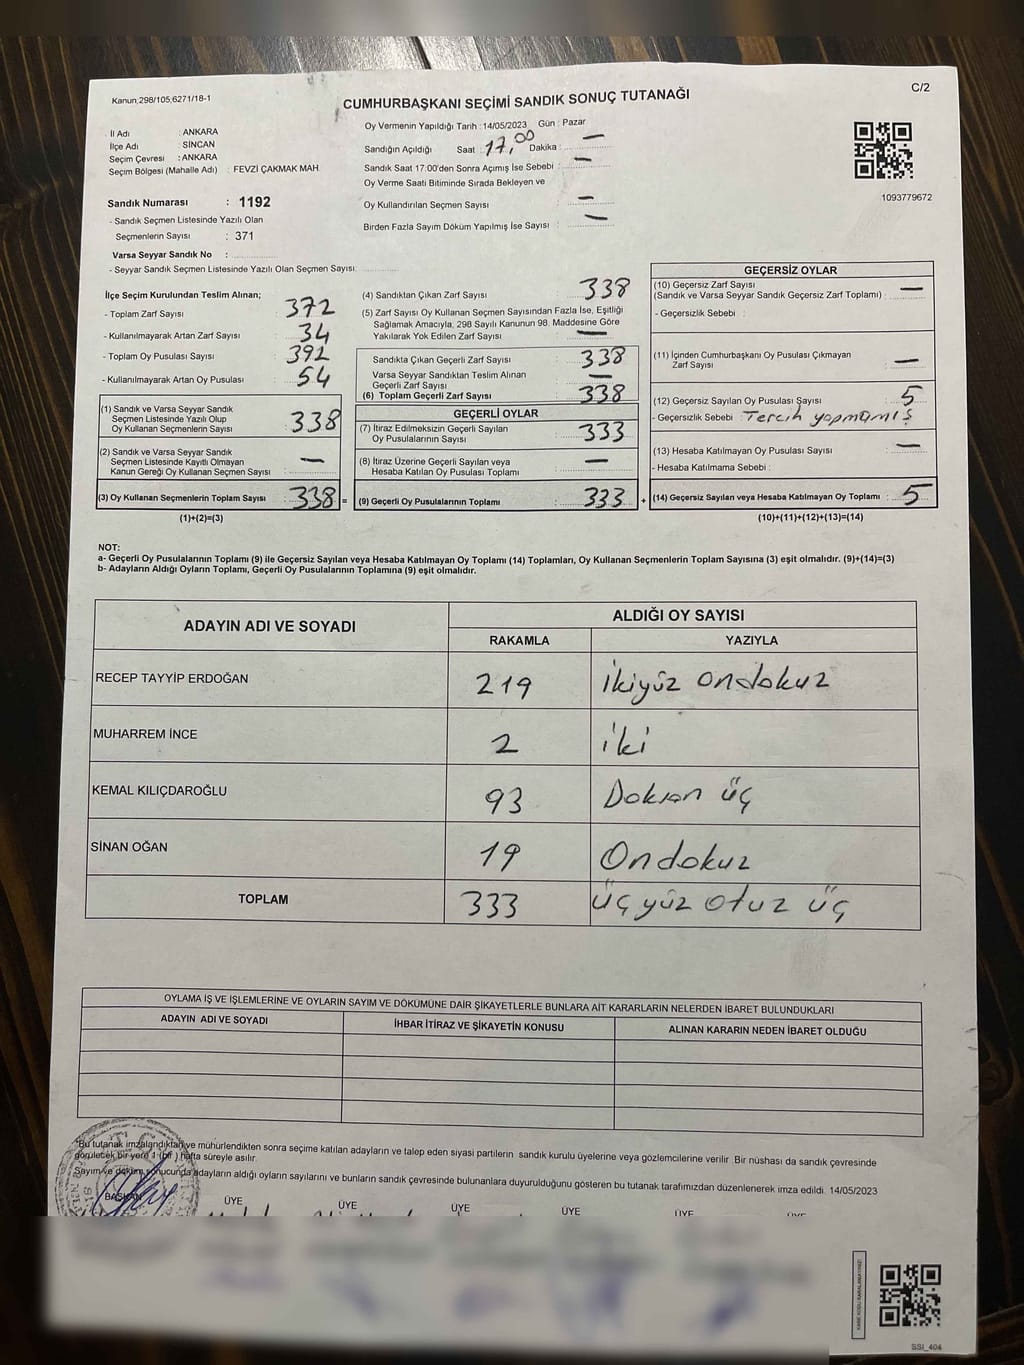 Kanun;298/105;6271/18-1
C/2
CUMHURBAŞKANI SEÇİMİ SANDIK SONUÇ TUTANAĞI
İl Adı : ANKARA
İlçe Adı : SİNCAN
Seçim Çevresi : ANKARA
Seçim Bölgesi (Mahalle Adı) : FEVZİ ÇAKMAK MAH
Sandık Numarası : 1192
- Sandık Seçmen Listesinde Yazılı Olan
Seçmenlerin Sayısı : 371
Varsa Seyyar Sandık No :
- Seyyar Sandık Seçmen Listesinde Yazılı Olan Seçmen Sayısı:
Oy Vermenin Yapıldığı Tarih : 14/05/2023 Gün : Pazar
Sandığın Açıldığı Saat : 17,00 Dakika : —
Sandık Saat 17:00'den Sonra Açımış İse Sebebi : —
Oy Verme Saati Bitiminde Sırada Bekleyen ve
Oy Kullandırılan Seçmen Sayısı : —
Birden Fazla Sayım Döküm Yapılmış İse Sayısı : —
1093779672
İlçe Seçim Kurulundan Teslim Alınan;
- Toplam Zarf Sayısı : 372
- Kullanılmayarak Artan Zarf Sayısı : 34
- Toplam Oy Pusulası Sayısı : 392
- Kullanılmayarak Artan Oy Pusulası : 54
(1) Sandık ve Varsa Seyyar Sandık
Seçmen Listesinde Yazılı Olup
Oy Kullanan Seçmenlerin Sayısı : 338
(2) Sandık ve Varsa Seyyar Sandık
Seçmen Listesinde Kayıtlı Olmayan
Kanun Gereği Oy Kullanan Seçmen Sayısı : —
(3) Oy Kullanan Seçmenlerin Toplam Sayısı : 338 =
(1)+(2)=(3)
(4) Sandıktan Çıkan Zarf Sayısı : 338
(5) Zarf Sayısı Oy Kullanan Seçmen Sayısından Fazla İse, Eşitliği
Sağlamak Amacıyla, 298 Sayılı Kanunun 98. Maddesine Göre
Yakılarak Yok Edilen Zarf Sayısı : —
Sandıkta Çıkan Geçerli Zarf Sayısı : 338
Varsa Seyyar Sandıktan Teslim Alınan
Geçerli Zarf Sayısı : —
(6) Toplam Geçerli Zarf Sayısı : 338
GEÇERLİ OYLAR
(7) İtiraz Edilmeksizin Geçerli Sayılan
Oy Pusulalarının Sayısı : 333
(8) İtiraz Üzerine Geçerli Sayılan veya
Hesaba Katılan Oy Pusulası Toplamı : —
(9) Geçerli Oy Pusulalarının Toplamı : 333 +
GEÇERSİZ OYLAR
(10) Geçersiz Zarf Sayısı
(Sandık ve Varsa Seyyar Sandık Geçersiz Zarf Toplamı) : —
- Geçersizlik Sebebi :
(11) İçinden Cumhurbaşkanı Oy Pusulası Çıkmayan
Zarf Sayısı : —
(12) Geçersiz Sayılan Oy Pusulası Sayısı : 5
- Geçersizlik Sebebi : Tercih yapmamış
(13) Hesaba Katılmayan Oy Pusulası Sayısı : —
- Hesaba Katılmama Sebebi :
(14) Geçersiz Sayılan veya Hesaba Katılmayan Oy Toplamı : 5
(10)+(11)+(12)+(13)=(14)
NOT:
a- Geçerli Oy Pusulalarının Toplamı (9) ile Geçersiz Sayılan veya Hesaba Katılmayan Oy Toplamı (14) Toplamları, Oy Kullanan Seçmenlerin Toplam Sayısına (3) eşit olmalıdır. (9)+(14)=(3)
b- Adayların Aldığı Oyların Toplamı, Geçerli Oy Pusulalarının Toplamına (9) eşit olmalıdır.
ADAYIN ADI VE SOYADI
ALDIĞI OY SAYISI
RAKAMLA YAZIYLA
RECEP TAYYİP ERDOĞAN 219 İkiyüz ondokuz
MUHARREM İNCE 2 iki
KEMAL KILIÇDAROĞLU 93 Doksan üç
SİNAN OĞAN 19 Ondokuz
TOPLAM 333 üçyüz otuz üç
OYLAMA İŞ VE İŞLEMLERİNE VE OYLARIN SAYIM VE DÖKÜMÜNE DAİR ŞİKAYETLERLE BUNLARA AİT KARARLARIN NELERDEN İBARET BULUNDUKLARI
ADAYIN ADI VE SOYADI İHBAR İTİRAZ VE ŞİKAYETİN KONUSU ALINAN KARARIN NEDEN İBARET OLDUĞU
*Bu tutanak imzalandıktan ve mühürlendikten sonra seçime katılan adayların ve talep eden siyasi partilerin sandık kurulu üyelerine veya gözlemcilerine verilir. Bir nüshası da sandık çevresinde
görülecek bir yere 1 (bir) hafta süreyle asılır.
Sayım ve döküm sonucunda adayların aldığı oyların sayılarını ve bunların sandık çevresinde bulunanlara duyurulduğunu gösteren bu tutanak tarafımızdan düzenlenerek imza edildi. 14/05/2023
BAŞKAN ÜYE ÜYE ÜYE ÜYE ÜYE ÜYE
SSİ_404